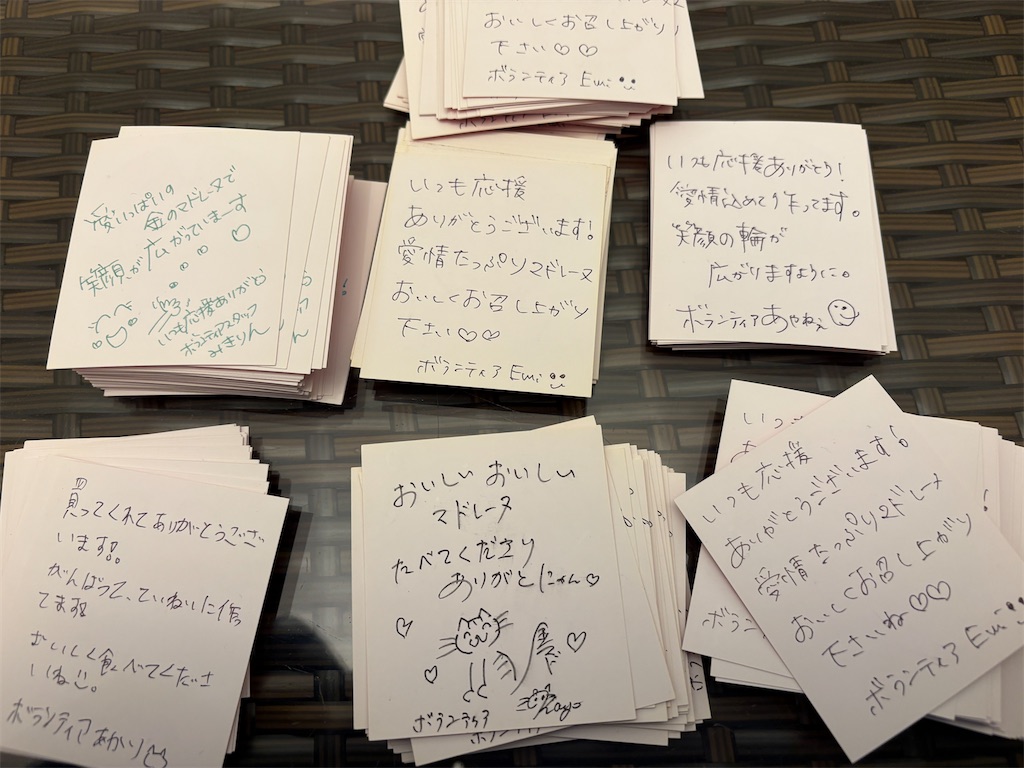 おいしくお召し上がり
下さい♡♡
ボランティア Emi
愛いっぱいの
金のマドレーヌで
笑顔が広がっていまーす
♡
いつも応援ありがと
ボランティアスタッフ
みきりん
いつも応援
ありがとうございます!
愛情たっぷりマドレーヌ
おいしくお召し上がり
下さい♡♡
ボランティア Emi
いつも応援ありがとう!
愛情込めて作ってます。
笑顔の輪が
広がりますように。
ボランティアあやねぇ
買ってくれてありがとうござ
います!!
がんばって、ていねいに作っ
てます!
おいしく食べてくださ
いね。
ボランティアあかり
おいしい おいしい
マドレーヌ
たべてくださり
ありがとにゃん♡
ボランティア
いつも応援
ありがとうございます!
愛情たっぷりマドレーヌ
おいしくお召し上がり
下さいね♡♡
ボランティア Emi